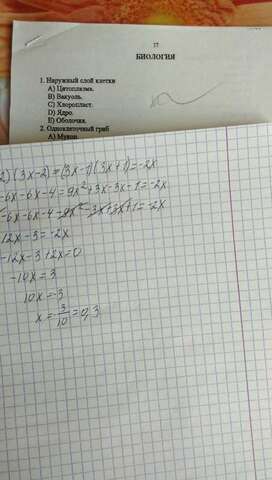 17
БИОЛОГИЯ
1. Наружный слой клетки
A) Цитоплазма.
B) Вакуоль.
C) Хлоропласт.
D) Ядро.
E) Оболочка.
2. Одноклеточный гриб
A) Мукор.
2)(3x-2)=(3x-1)(3x+1)=-2x
-6x-6x-4=9x²+3x-3x-1=-2x
-6x-6x-4-9x²-3x+3x+1=-2x
12x-3=-2x
-12x-3+2x=0
-10x=3
10x=-3
x=3/10=0,3